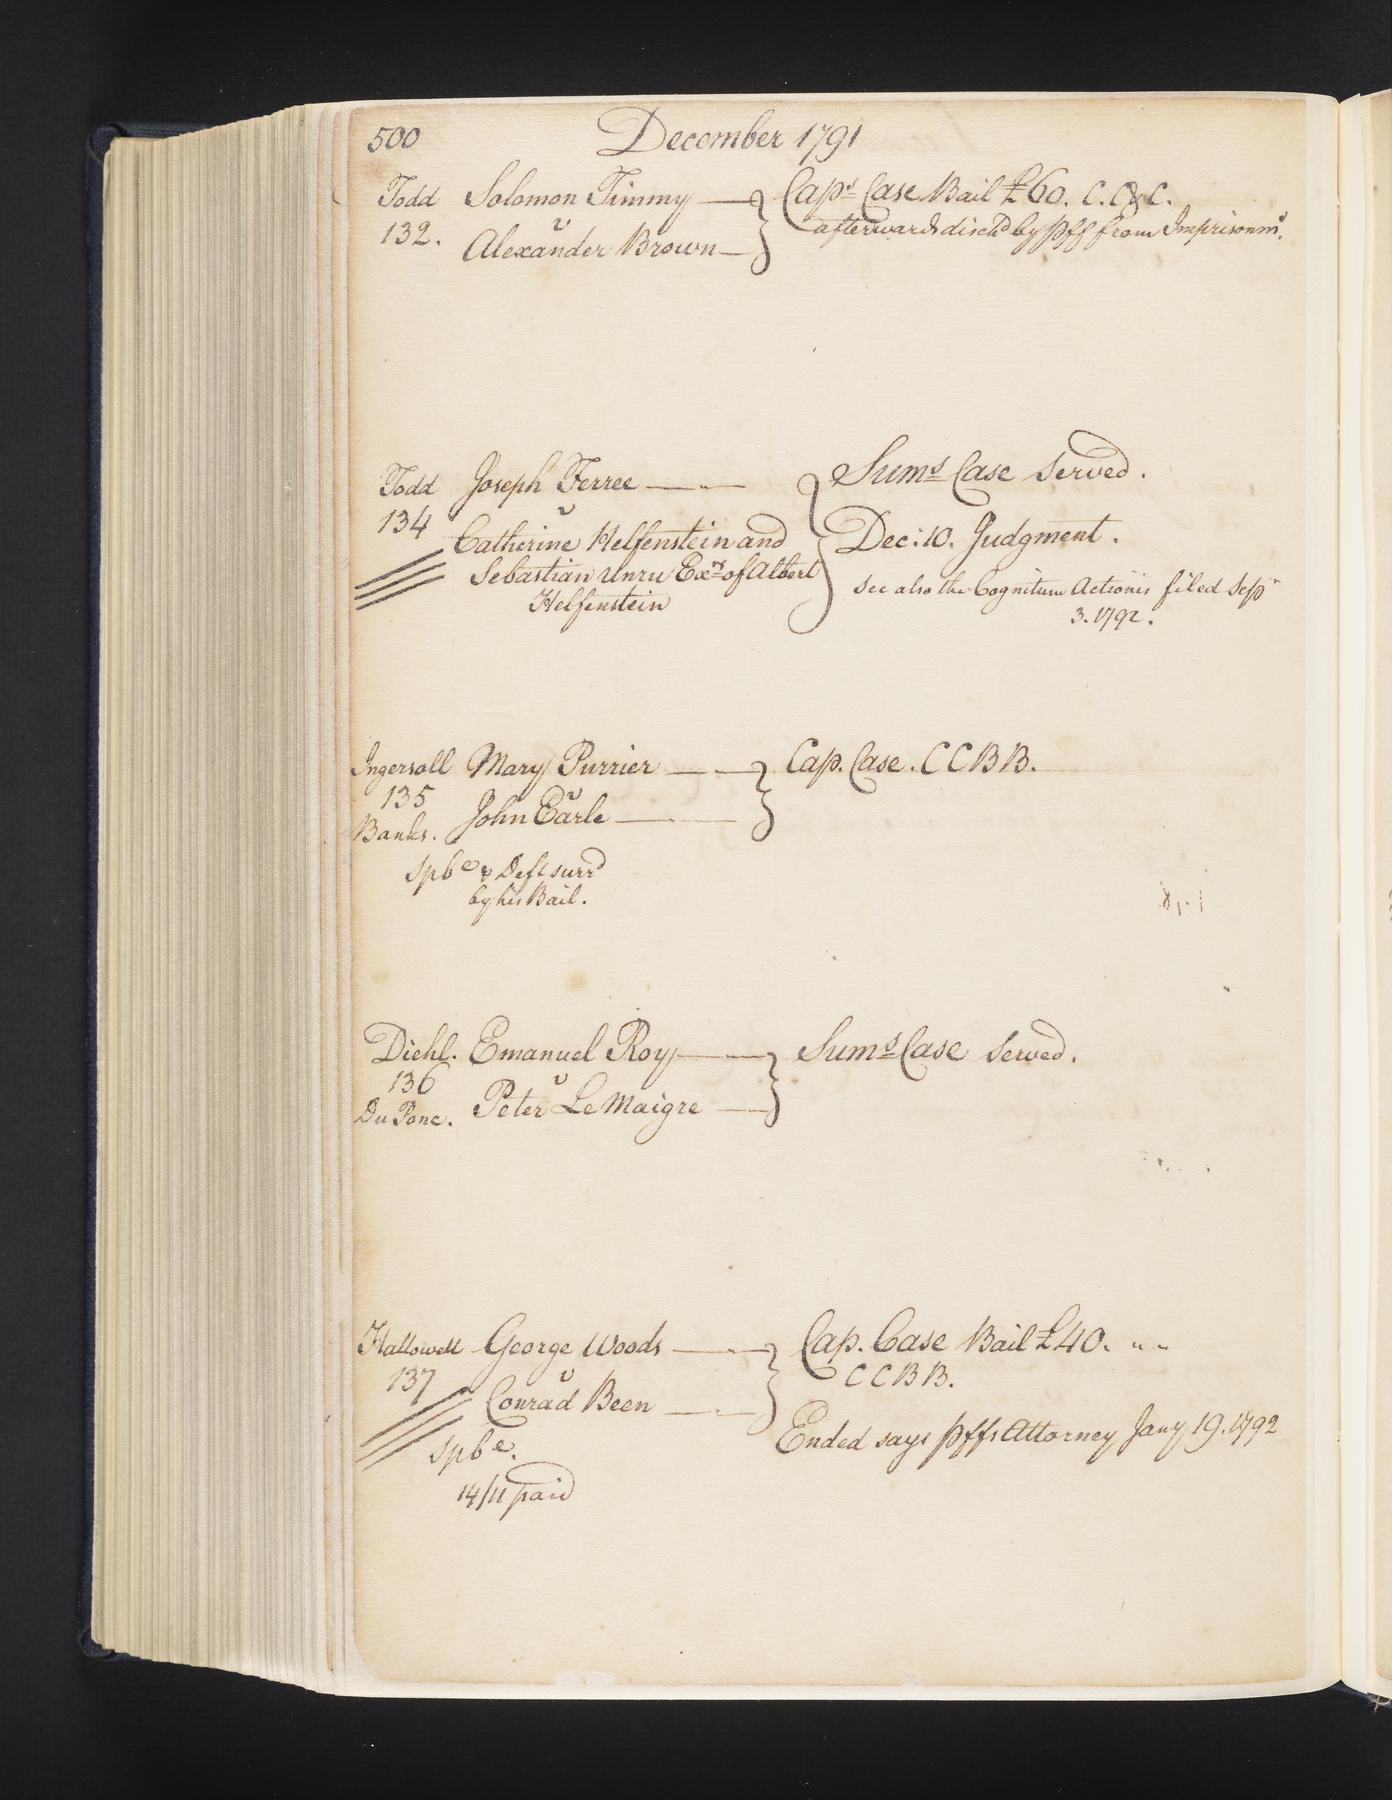 500 December 1791
Todd Solomon Timmy Cap.s Case Bail £60. C.C&C.
132. v afterwards disch.d by pff from Imprisonm.t
Alexander Brown
Todd Joseph Ferree Sum.s Case Served.
134 v
Catherine Helfenstein and Dec: 10. Judgment.
Sebastian Unru Ex.rs of Albert see also the Cognitum Actionis filed Sep
Helfenstein 3. 1792.
Ingersoll Mary Purrier Cap. Case. CCBB.
135 v
Banks. John Earle
Spb.e & Deft surr.d
by his Bail.
Diehl. Emanuel Roy Sum.s Case Served.
136 v
Du Ponc. Peter Le Maigre
Hallowell George Woods Cap. Case Bail £40. " "
137 v CCBB.
Conrad Been
Ended says pffs Attorney Jany 19. 1792
Spb.e.
14/11 paid